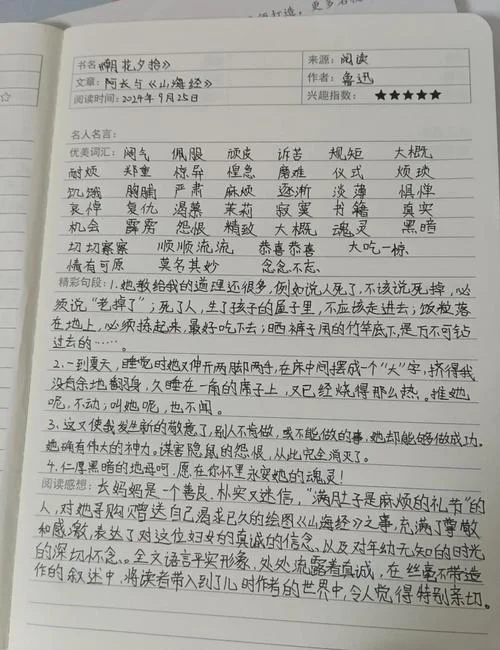 书名《朝花夕拾》 来源：阅读
文章：阿长与《山海经》 作者：鲁迅
阅读时间：2024年9月25日 兴趣指数：★★★★★
名人名言：
优美词汇： 闹气 佩服 顽皮 诉苦 规矩 大概
耐烦 郑重 惊异 惶急 磨难 仪式 烦琐
饥饿 胸脯 严肃 麻烦 逐渐 淡薄 惧惮
哀悼 复仇 渴慕 茉莉 寂寞 书籍 真实
机会 霹雳 怨恨 精致 大概 魂灵 黑暗
切切察察 顺顺流流 恭喜恭喜 大吃一惊
情有可原 莫名其妙 念念不忘
精彩句段：1.她教给我的道理还很多，例如说人死了，不该说死掉，必
须说“老掉了”；死了人，生了孩子的屋子里，不应该走进去；饭粒落
在地上，必须拣起来，最好吃下去；晒裤子用的竹竿底下，是万不可钻
过去的……。
2.一到夏天，睡觉时她又伸开两脚两手，在床中间摆成一个“大”字，挤得我
没有余地翻身，久睡在一角的席子上，又已经烧得那么热。推她
呢，不动；叫她呢，也不闻。
3.这又使我发生新的敬意了，别人不肯做，或不能做的事，她却能够做成功。
她确有伟大的神力。谋害隐鼠的怨恨，从此完全消灭了。
4.仁厚黑暗的地母呵，愿在你怀里永安她的魂灵！
阅读感想：长妈妈是一个善良、朴实又迷信，“满肚子是麻烦的礼节”的
人，对她寻购赠送自己渴求已久的绘图《山海经》之事，充满了尊敬
和感激，表达了对这位妇女的真诚的信念、以及对年幼无知的时光
的深切怀念。全文语言平实形象，处处流露着真诚，在丝毫不带造
作的叙述中，将读者带入到了儿时作者的世界中，令人觉得特别亲切。